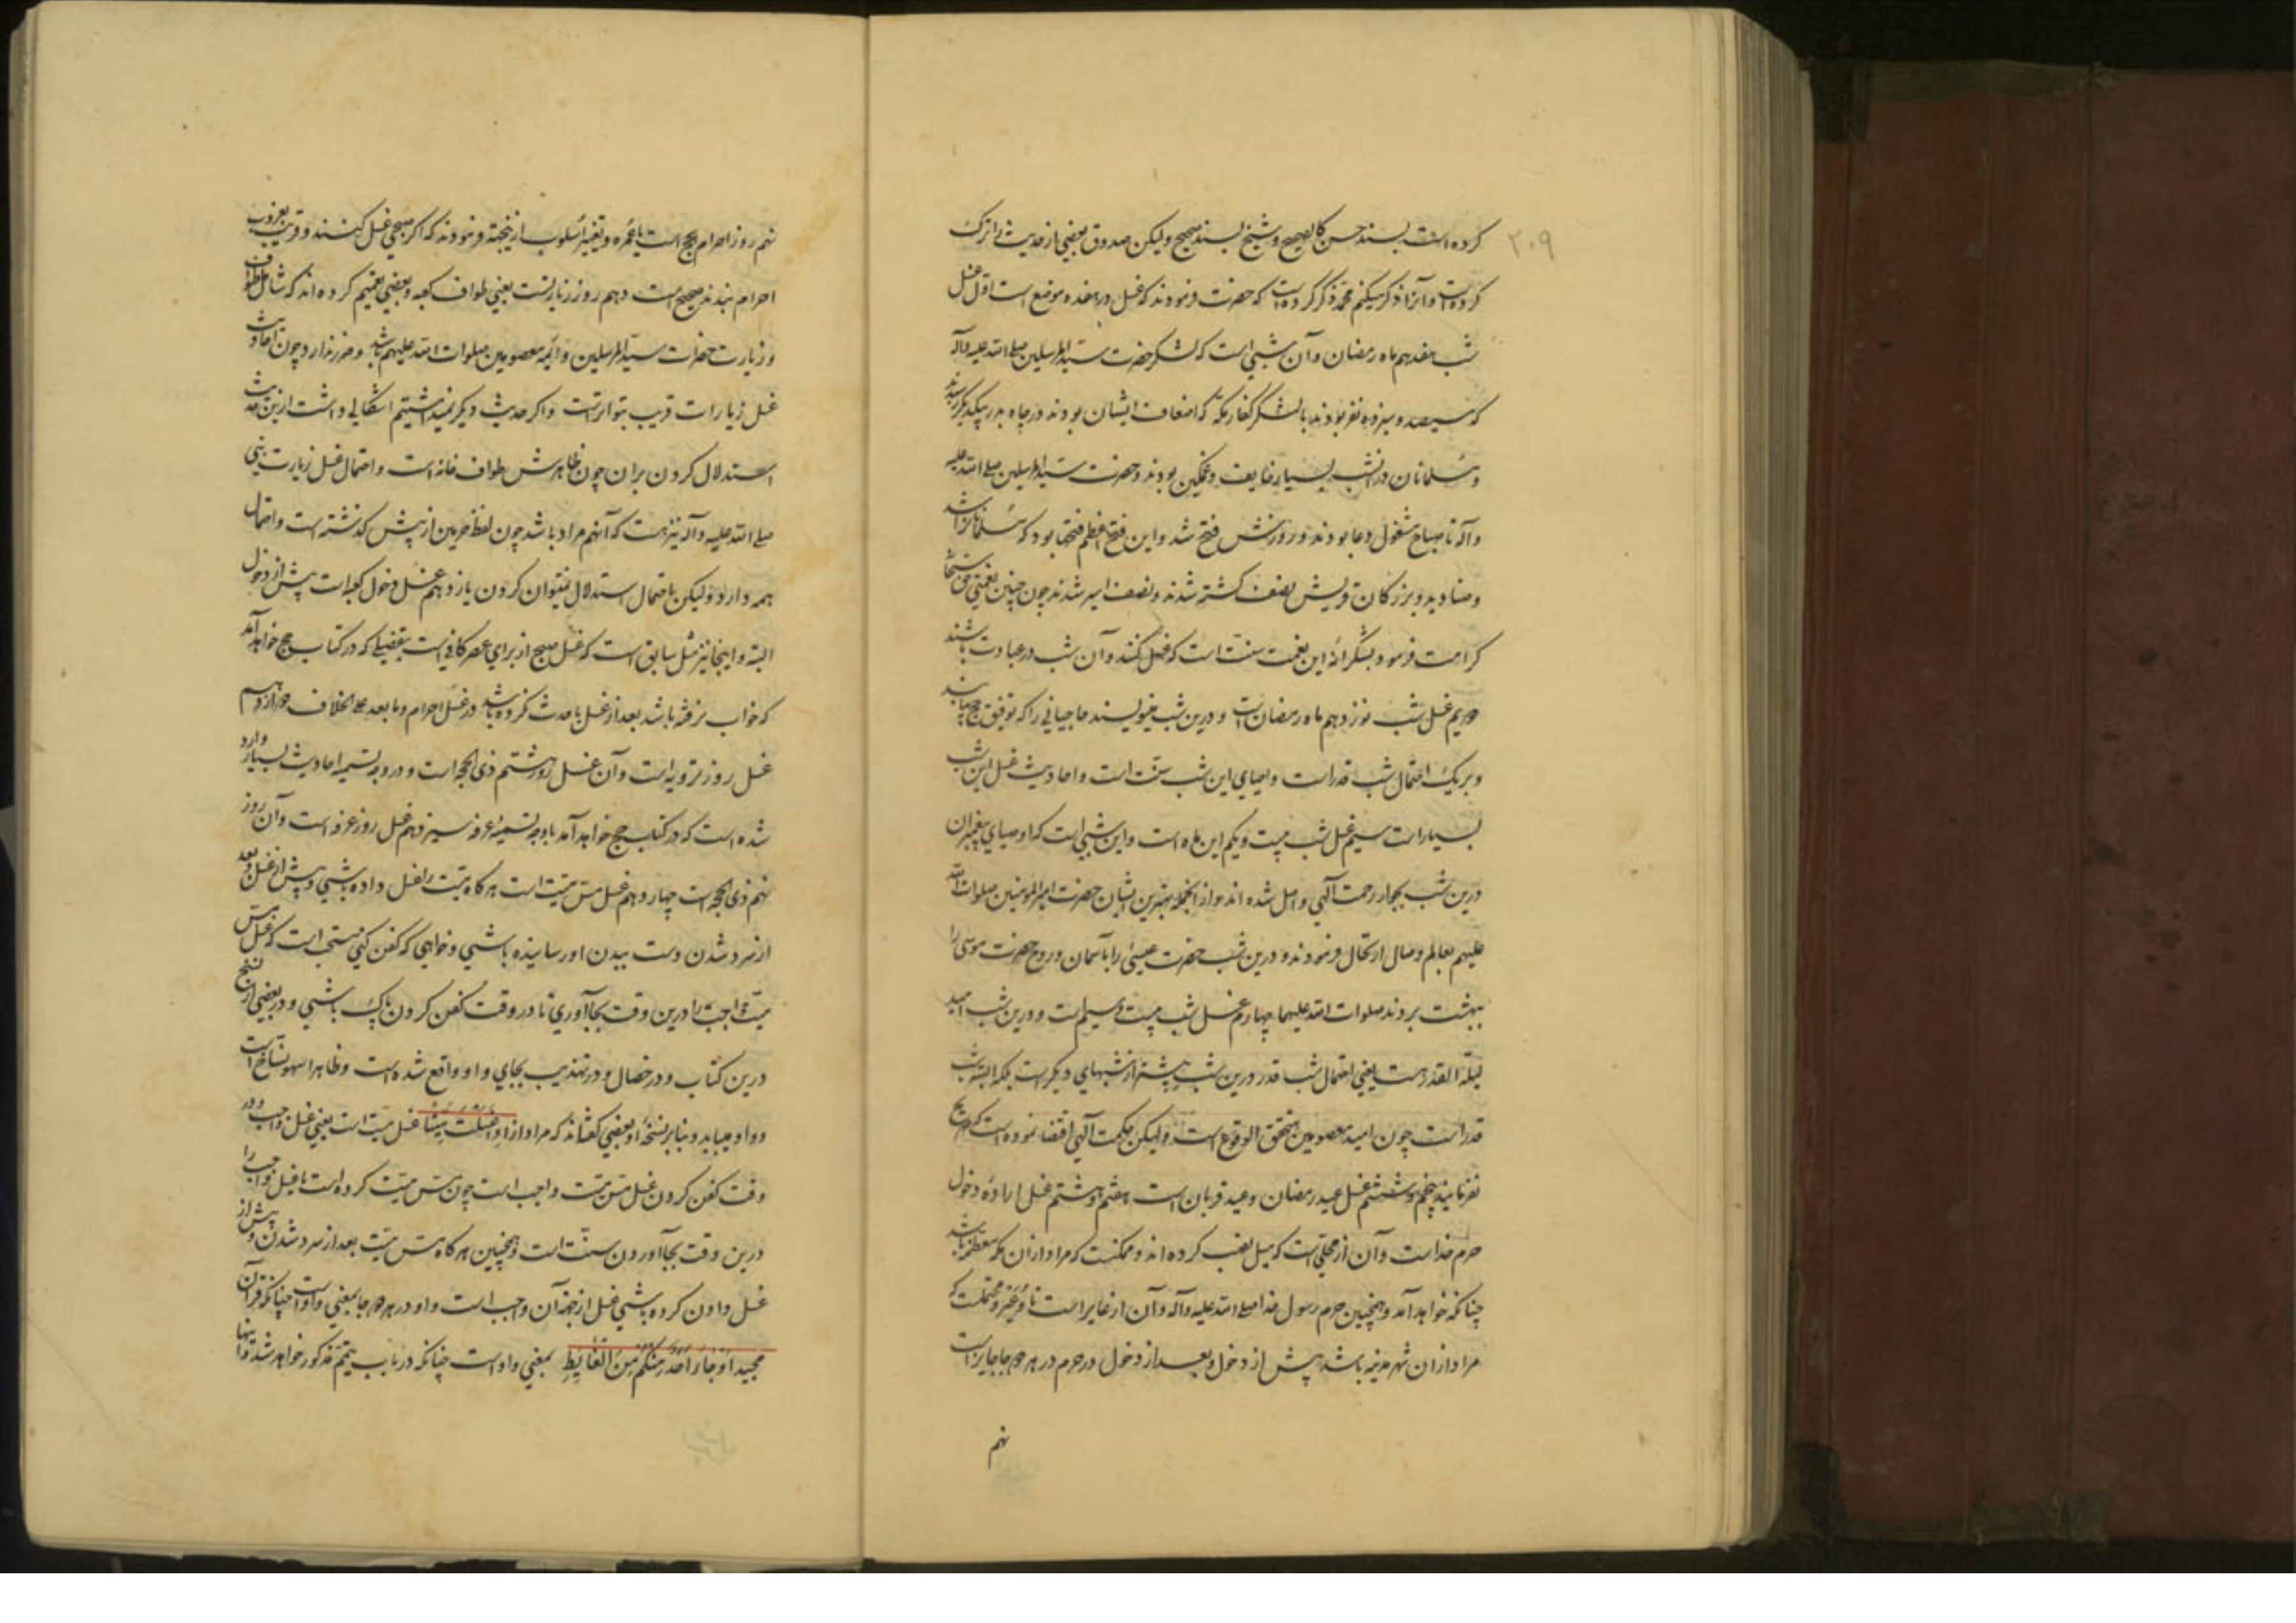 ۲۰۹
کرده است بسند حسن کالصحیح و شیخ بسند صحیح ولیکن صدوق بعضی از حدیث را ترک
کرده است و آنرا ذکر میکنم محمد ذکر کرده است که حضرت فرمودند که غسل در هفده موضع است اول غسل
شب هفدهم ماه رمضان و آن شبی است که لشکر حضرت سید المرسلین صلی الله علیه وآله
که سیصد و سیزده نفر بودند با لشکر کفار مکه که اضعاف ایشان بودند در چاه بدر بیکدیگر رسیدند
و مسلمانان در آنشب بسیار خایف و غمگین بودند و حضرت سید المرسلین صلی الله علیه
وآله تا صباح مشغول دعا بودند و روزش فتح شد و این فتح اعظم فتحها بود که مسلمانان را شد
و صنادید و بزرکان قریش نصف کشته شدند و نصف اسیر شدند چون چنین نعمتی حق سبحانه
کرامت فرمود بشکرانه این نعمت سنت است که غسل کنند و آن شب در عبادت باشند
دویم غسل شب نوزدهم ماه رمضان است و درین شب مینویسند حاجیانی را که توفیق حج میابند
و بریک احتمال شب قدر است و احیای این شب سنت است و احادیث غسل این شب
بسیار است سیم غسل شب بیست و یکم این ماه است و این شبی است که اوصیای پیغمبران
درین شب بجوار رحمت آلهی واصل شده اند و از آنجمله بهترین ایشان حضرت امیر المؤمنین صلوات الله
علیهم بعالم وصال ارتحال فرمودند و درین شب حضرت عیسی را بآسمان و روح حضرت موسی را
ببهشت بردند صلوات الله علیهما چهارم غسل شب بیست و سیم است و درین شب امید
لیلة القدر هست یعنی احتمال شب قدر درین شب بیشتر از شبهای دیکر است بلکه البته شب
قدر است چون امید معصومین متحقق الوقوع است ولیکن حکمت آلهی اقتضا نموده است که صریح
نفرمایند پنجم و ششم غسل عید رمضان و عید قربان است هفتم و هشتم غسل اراده دخول
حرم خداست و آن از محلی است که میل نصب کرده اند و ممکنست که مراد از آن مکه معظمه باشد
چنانکه خواهد آمد و همچنین حرم رسول خدا صلی الله علیه وآله و آن از عایر است تا وعیر و محتملست که
مراد از آن شهر مدینه باشد پیش از دخول و بعد از دخول در حرم در هر دو جا جایز است
نهم
نهم روز احرام حج است یا عمره و تغییر اسلوب ازینجهة فرمودند که اکر صبحی غسل کنند و قریب بغروب
احرام بندند صحیح است دهم روز زیارتست یعنی طواف کعبه و بعضی تعمیم کرده اند که شامل طواف
و زیارت حضرات سید المرسلین و ائمه معصومین صلوات الله علیهم باشد و ضرر ندارد چون احادیث
غسل زیارات قریب بتواتر است و اکر حدیث دیکر نمیداشتیم اشکالی داشت ازین حدیث
استدلال کردن بران چون ظاهرش طواف خانه است و احتمال غسل زیارت نبی
صلی الله علیه وآله نیز هست که آنهم مراد باشد چون لفظ حرمین از پیش کذشته است و احتمال
همه دارد ولیکن باحتمال استدلال نمیتوان کردن یازدهم غسل دخول کعبه است پیش از دخول
البته و اینجا نیز مثل سابق است که غسل صبح از برای عصر کافی است بتفصیلی که در کتاب حج خواهد آمد
که خواب نرفته باشد بعد از غسل یا حدث نکرده باشد در غسل احرام و ما بعد علی الخلاف دوازدهم
غسل روز ترویه است و آن غسل روز هشتم ذی الحجه است و در وجه تسمیه احادیث بسیار وارد
شده است که در کتاب حج خواهد آمد با وجه تسمیه عرفه سیزدهم غسل روز عرفه است و آن روز
نهم ذی الحجه است چهاردهم غسل مس میت است هرکاه میت را غسل داده باشی و پیش از غسل و بعد
از سرد شدن دست ببدن او رسانیده باشی و خواهی که کفن کنی مستحب است که غسل مس
میت واجب را درین وقت بجا آوری تا در وقت کفن کردن پاک باشی و در بعضی از نسخ
درین کتاب و در خصال و در تهذیب بجای واو واقع شده است و ظاهرا سهو نساخ است
و واو میباید و بنابر نسخه او بعضی کفته اند که مراد از اذا غسلت میتا غسل میت است یعنی غسل واجب و در
وقت کفن کردن غسل مس میت واجب است چون مس میت کرده است یا غسل واجب را
درین وقت بجا آوردن سنت است و همچنین هرکاه مس میت بعد از سرد شدن و پیش از
غسل دادن کرده باشی غسل از جهة آن واجب است و او در هر دو جا بمعنی واو است چنانکه در قرآن
مجید أو جاء أحد منكم من الغائط بمعنی واو است چنانکه در باب تیمم مذکور خواهد شد